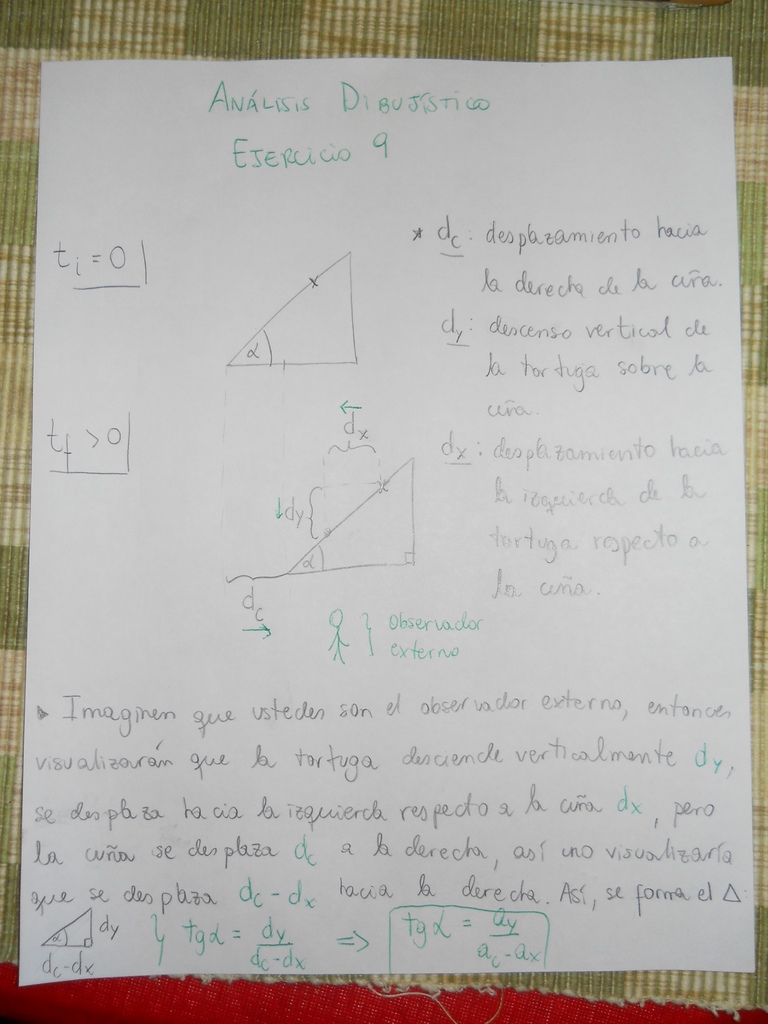 ANÁLISIS DIBUJÍSTICO
EJERCICIO 9
ti = 0
* dc: desplazamiento hacia
la derecha de la cuña.
dy: descenso vertical de
la tortuga sobre la
cuña.
dx: desplazamiento hacia
la izquierda de la
tortuga respecto a
la cuña.
x
α
tf > 0
←
dx
x
↓dy
α
dc
→
Observador
externo
▸ Imaginen que ustedes son el observador externo, entonces
visualizarán que la tortuga desciende verticalmente dy,
se desplaza hacia la izquierda respecto a la cuña dx, pero
la cuña se desplaza dc a la derecha, así uno visualizaría
que se desplaza dc - dx hacia la derecha. Así, se forma el Δ:
α dy
dc-dx
tgα = dy/(dc-dx) => tgα = ay/(ac-ax)